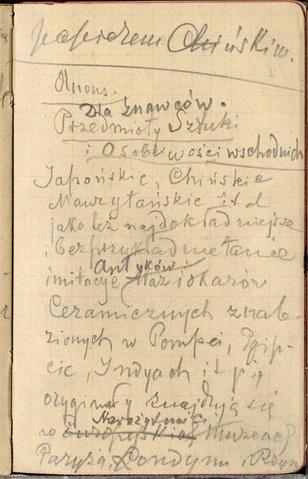 papierem Chińskim.
Anons.
Dla znawców.
Przedmioty Sztuki
i Osobliwości wschodnich
Japońskie, Chińskie
Maurytańskie itd
jako też najdokładniejsze
i bezprzykładnie tanie
Antyków
imitacye Waz i skarbów
Ceramicznych znale-
zionych w Pompei, Egip-
cie, Indyach i t p
oryginały znajdują się
Starożytnych
w Europejskich Muzeach
Paryża, Londynu i Rzym